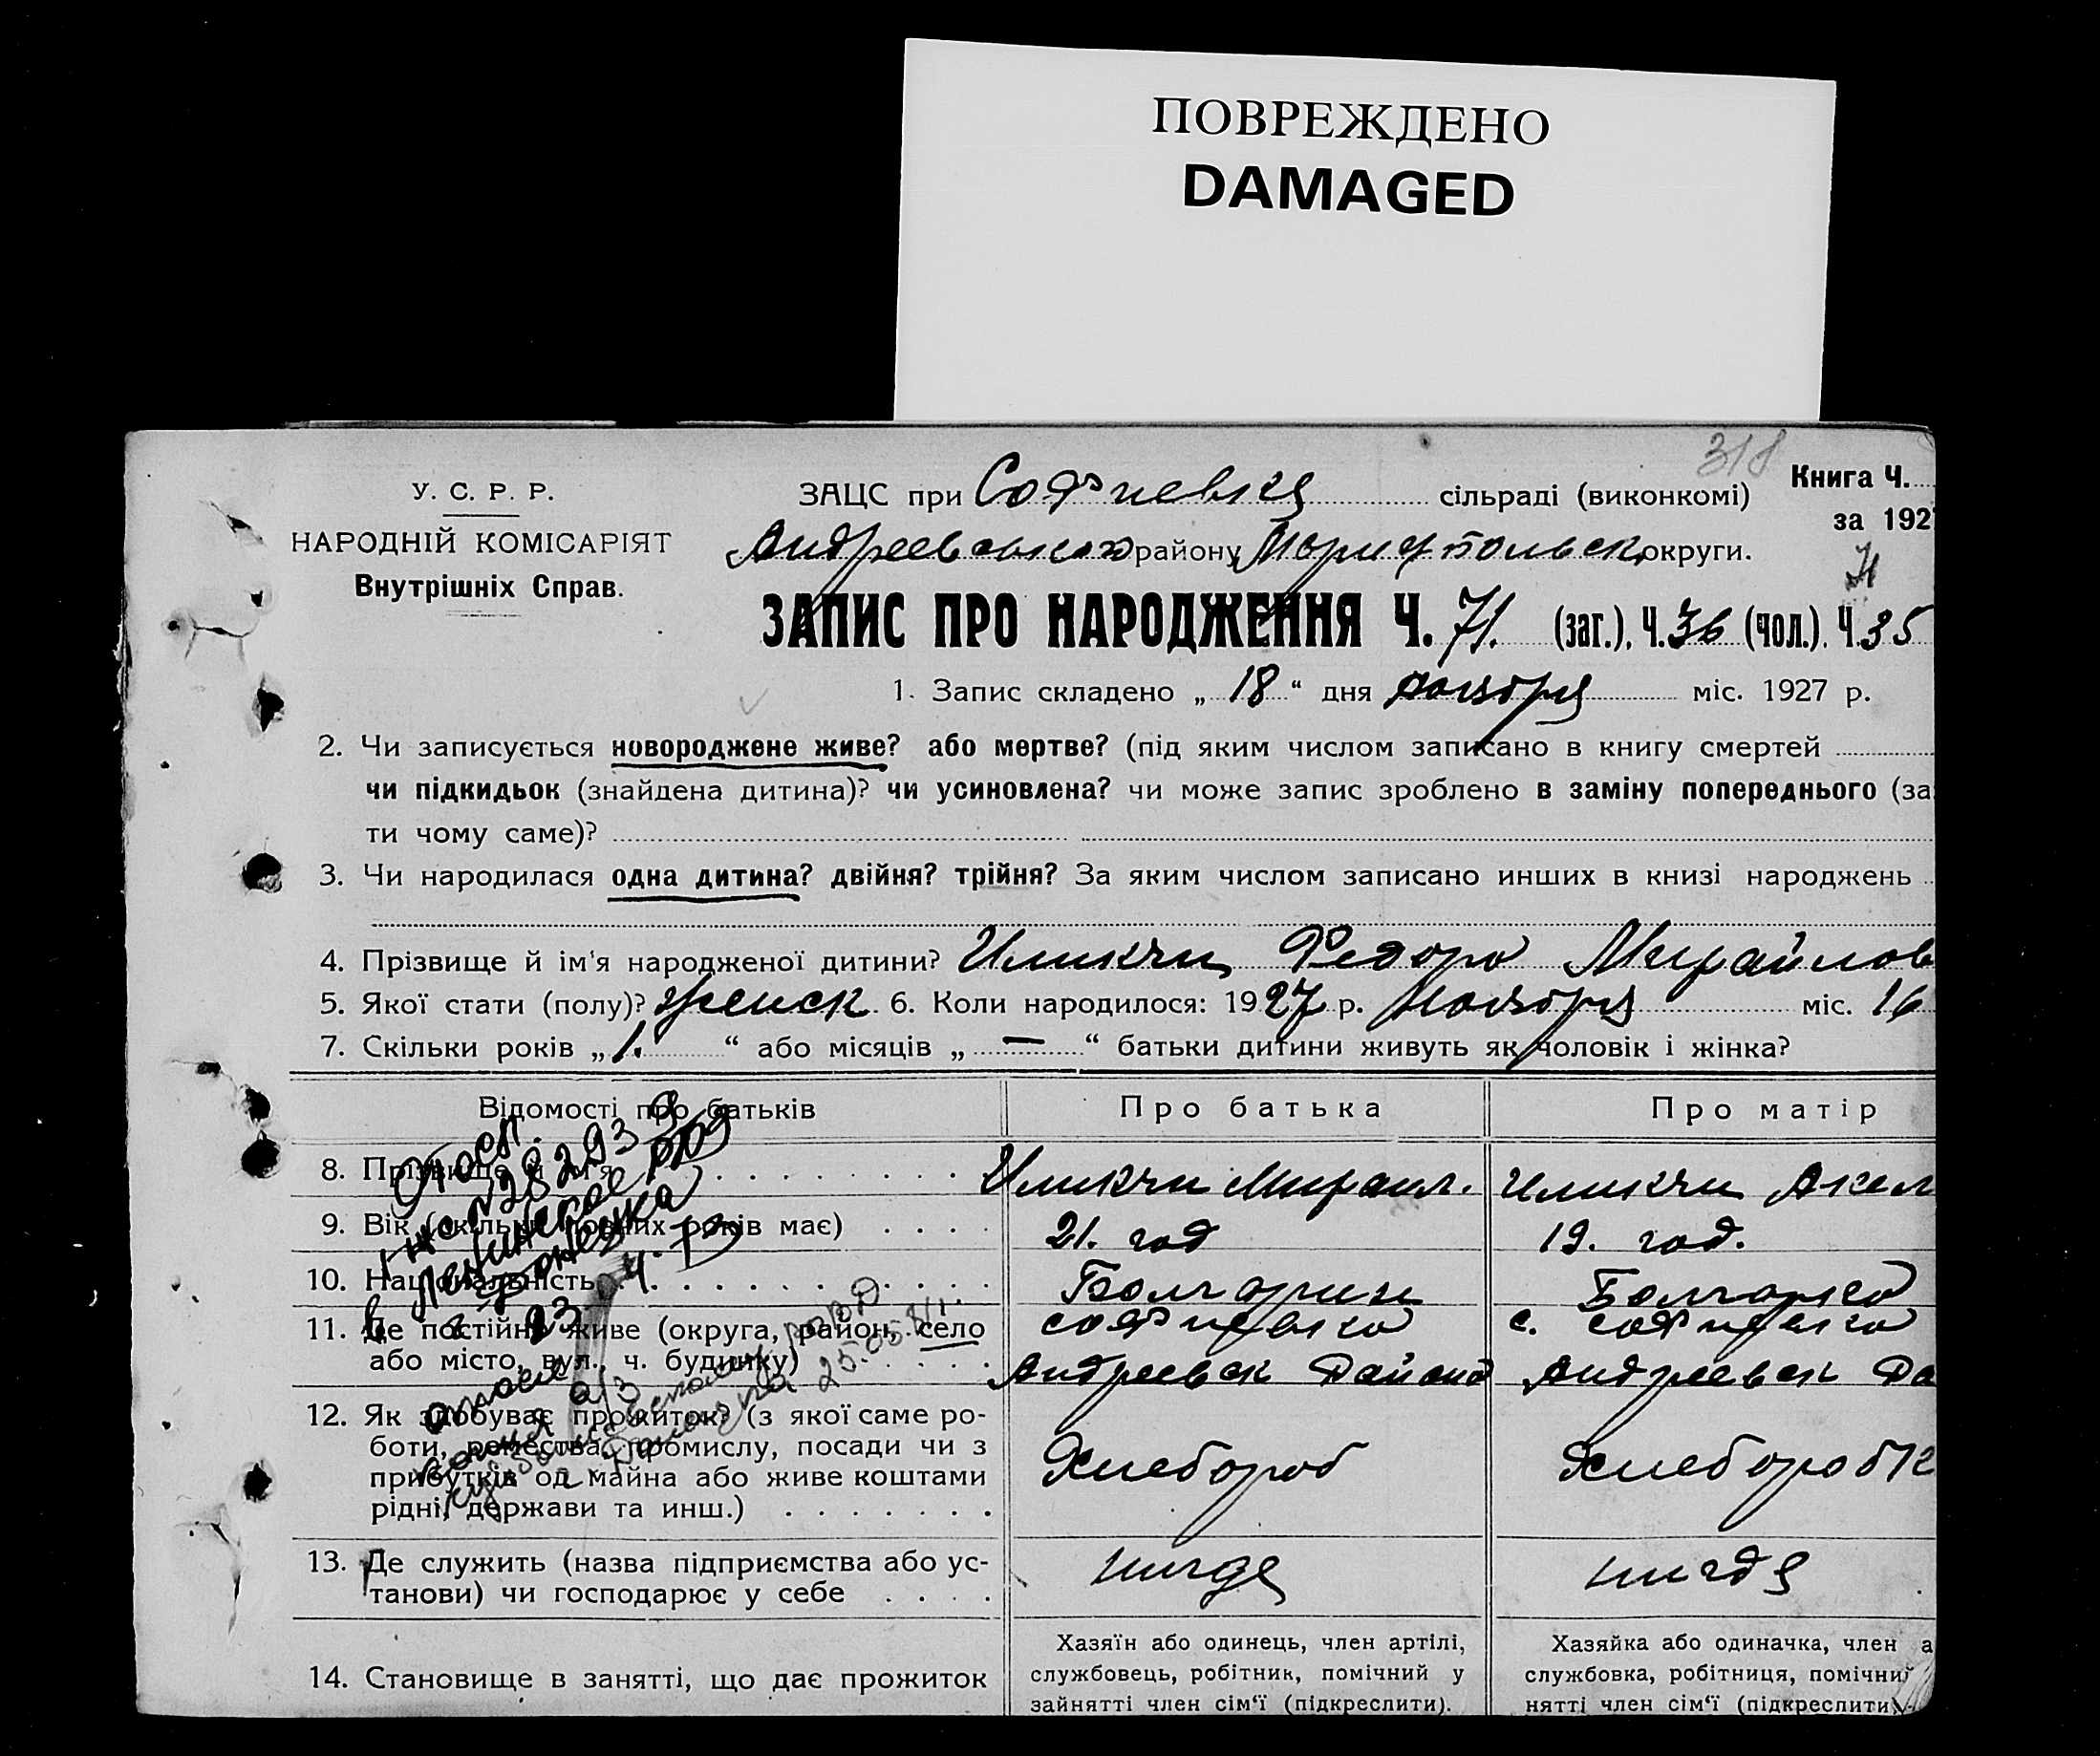 ПОВРЕЖДЕНО
DAMAGED
318
У. С. Р. Р.
НАРОДНІЙ КОМІСАРІЯТ
Внутрішніх Справ.
Книга Ч.
за 1927
ЗАЦС при Софиевка сільраді (виконкомі)
Андреевского району, Мариупольск округи.
71
ЗАПИС ПРО НАРОДЖЕННЯ Ч. 71. (заг.), Ч. 36 (чол.). Ч. 35
1. Запис складено „ 18 “ дня ноября міс. 1927 р.
2. Чи записується новороджене живе? або мертве? (під яким числом записано в книгу смертей
чи підкидьок (знайдена дитина)? чи усиновлена? чи може запис зроблено в заміну попереднього (за
ти чому саме)?
3. Чи народилася одна дитина? двійня? трійня? За яким числом записано инших в книзі народжень
4. Прізвище й ім'я народженої дитини? Иликчи Федора Михайлов
5. Якої стати (полу)? женск 6. Коли народилося: 1927 р. Ноября міс. 16
7. Скільки років „ 1. “ або місяців „ — “ батьки дитини живуть як чоловік і жінка?
Відомості про батьків
Про батька
Про матір
8. Прізвище й ім'я
Иликчи Михаил.
Иликчи Акел
9. Вік (скільки повних років має)
21. год
19. год.
10. Національність
Болгарин
Болгарка
11. Де постійно живе (округа, район, село
або місто, вул., ч. будинку)
софиевка
Андреевск Района
с. софиевка
Андреевск Ра
12. Як здобуває прожиток? (з якої саме ро-
боти, ремества, промислу, посади чи з
прибутків од майна або живе коштами
рідні, держави та инш.)
Хлебороб
Хлеборобк
13. Де служить (назва підприємства або ус-
танови) чи господарює у себе
нигде
нигде
14. Становище в занятті, що дає прожиток
Хазяїн або одинець, член артілі,
службовець, робітник, помічний у
зайнятті член сім'ї (підкреслити).
Хазяйка або одиначка, член а
службовка, робітниця, помічни
нятті член сім'ї (підкреслити)